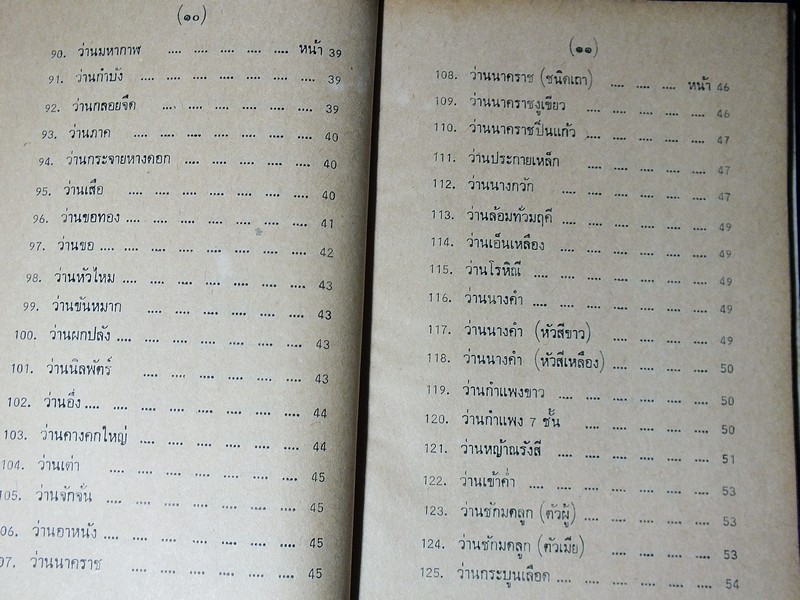 (๑๐)
90. ว่านมหากาฬ .... .... .... .... .... หน้า 39
91. ว่านกำบัง .... .... .... .... .... .... .... 39
92. ว่านกลอยจืด .... .... .... .... .... .... 39
93. ว่านภาค .... .... .... .... .... .... 40
94. ว่านกระจายหางดอก .... .... .... .... .... 40
95. ว่านเสือ .... .... .... .... .... .... .... 40
96. ว่านขอทอง .... .... .... .... .... .... .... 41
97. ว่านขอ .... .... .... .... .... .... .... .... 42
98. ว่านหัวไหม .... .... .... .... .... .... .... 43
99. ว่านขันหมาก .... .... .... .... .... .... 43
100. ว่านผกปลัง .... .... .... .... .... .... .... 43
101. ว่านนิลพัตร์ .... .... .... .... .... .... 43
102. ว่านอึ่ง .... .... .... .... .... .... .... .... 44
103. ว่านคางคกใหญ่ .... .... .... .... .... .... 44
104. ว่านเต่า .... .... .... .... .... .... .... 45
105. ว่านจักจั่น .... .... .... .... .... .... .... 45
06. ว่านอาหนัง .... .... .... .... .... .... .... 45
07. ว่านนาคราช .... .... .... .... .... .... 45
(๑๑)
108. ว่านนาคราช (ชนิดเถา) .... .... .... หน้า 46
109. ว่านนาคราชงูเขียว .... .... .... .... .... 46
110. ว่านนาคราชปิ่นแก้ว .... .... .... .... .... 47
111. ว่านประกายเหล็ก .... .... .... .... .... 47
112. ว่านนางกวัก .... .... .... .... .... .... 47
113. ว่านล้อมทั่วมฤคี .... .... .... .... .... .... 49
114. ว่านเอ็นเหลือง .... .... .... .... .... .... 49
115. ว่านโรหิณี .... .... .... .... .... .... .... 49
116. ว่านนางคำ .... .... .... .... .... .... .... 49
117. ว่านนางคำ (หัวสีขาว) .... .... .... .... .... 49
118. ว่านนางคำ (หัวสีเหลือง) .... .... .... .... 50
119. ว่านกำแพงขาว .... .... .... .... .... .... 50
120. ว่านกำแพง 7 ชั้น .... .... .... .... .... 50
121. ว่านหญ้าณรังสี .... .... .... .... .... .... 51
122. ว่านเข้าค่ำ .... .... .... .... .... .... .... 53
123. ว่านชักมดลูก (ตัวผู้) .... .... .... .... .... 53
124. ว่านชักมดลูก (ตัวเมีย) .... .... .... .... .... 53
125. ว่านกระบูนเลือด .... .... .... .... .... .... 54